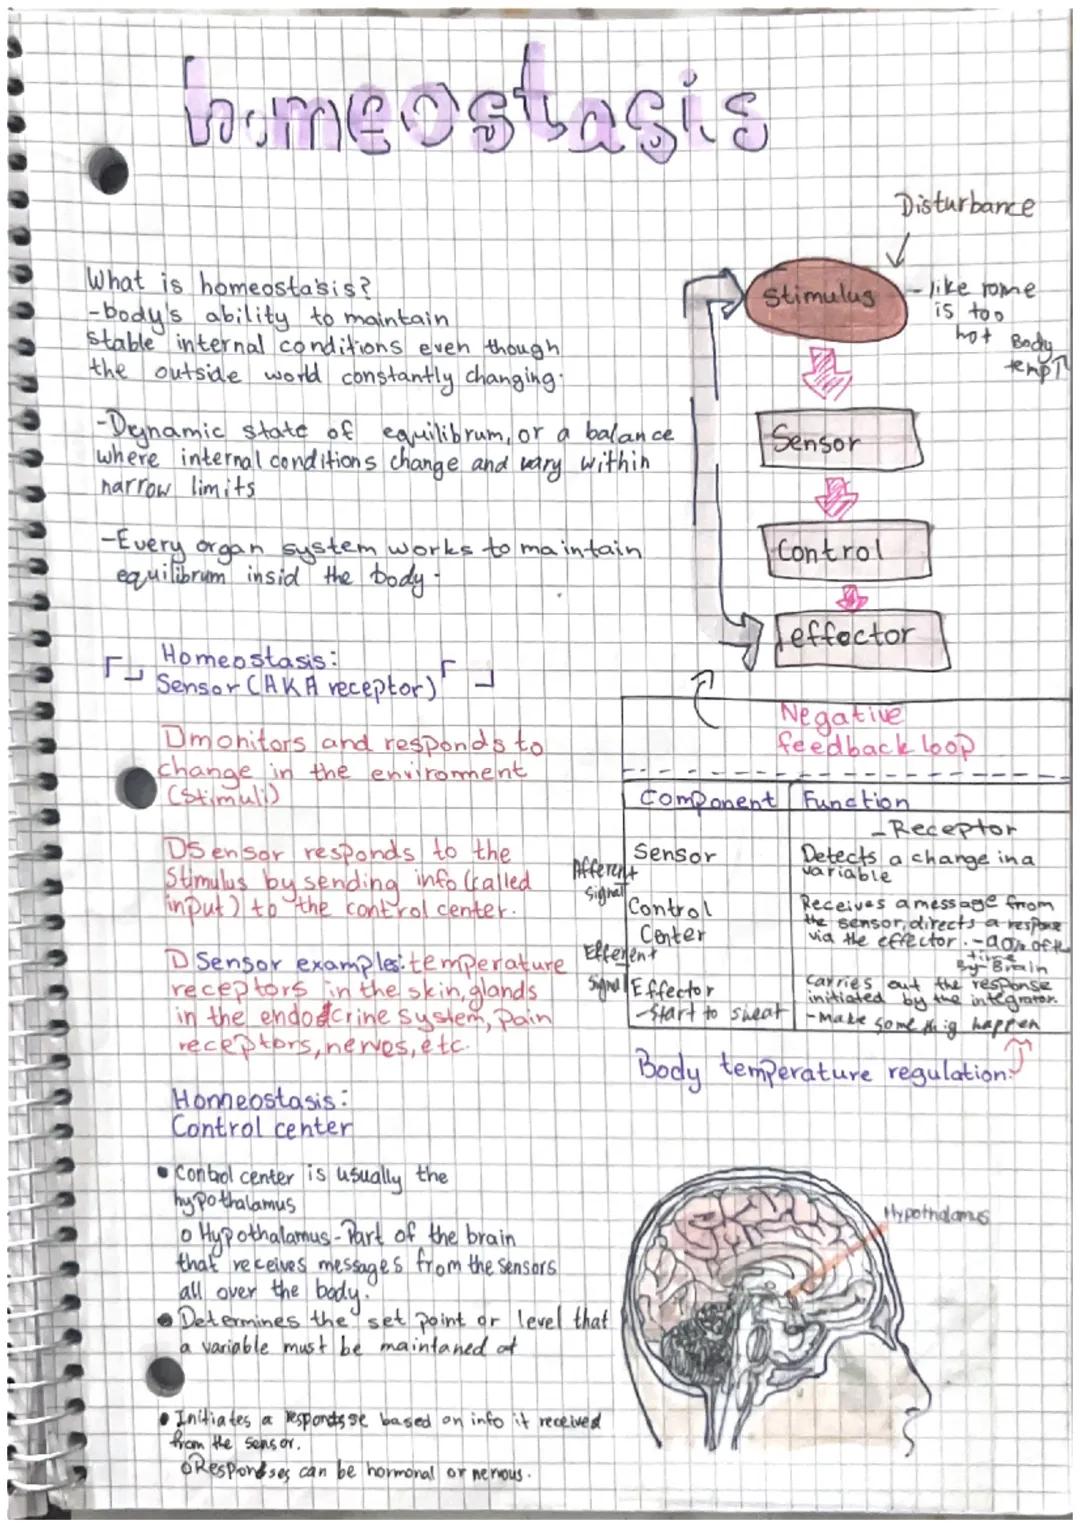 homeostasis
What is homeostasis?
-body's ability to maintain
stable internal conditions even though
the outside world constantly changing.
-Dynamic state of equilibrum, or a balance
where internal conditions change and vary within
narrow limits
-Every organ system works to maintain
equilibrum insid the body.
Disturbance
Stimulus
- like rome
is too
hot
Body
temp↑
Sensor
Control
effector
Homeostasis:
Sensor (AKA receptor)
monitors and responds to
change in the enviroment
(Stimuli)
Sensor responds to the
Stimulus by sending info (called
input) to the control center.
Sensor examples: temperature
receptors in the skin, glands
in the endocrine system, pain
receptors, nerves, etc.
Negative
feedback loop
Component Function
Sensor
- Receptor
Detects a change in a
variable
Afferent
signal
Control
Center
Receives a message from
the sensor, directs a response
via the effector. - 90% of the
time
By Brain
Efferent
signal
Effector
-Start to sweat
Carries out the response
initiated by the integrator.
-Make something happen
Body temperature regulation:
Homeostasis:
Control center
• Control center is usually the
hypothalamus
o Hypothalamus - Part of the brain
that receives messages from the sensors
all over the body.
• Determines the set point or level that
a variable must be maintaned at
• Initiates a respondsse based on info it received
from the sensor.
o Responses can be hormonal or nervous.
Hypothalamus